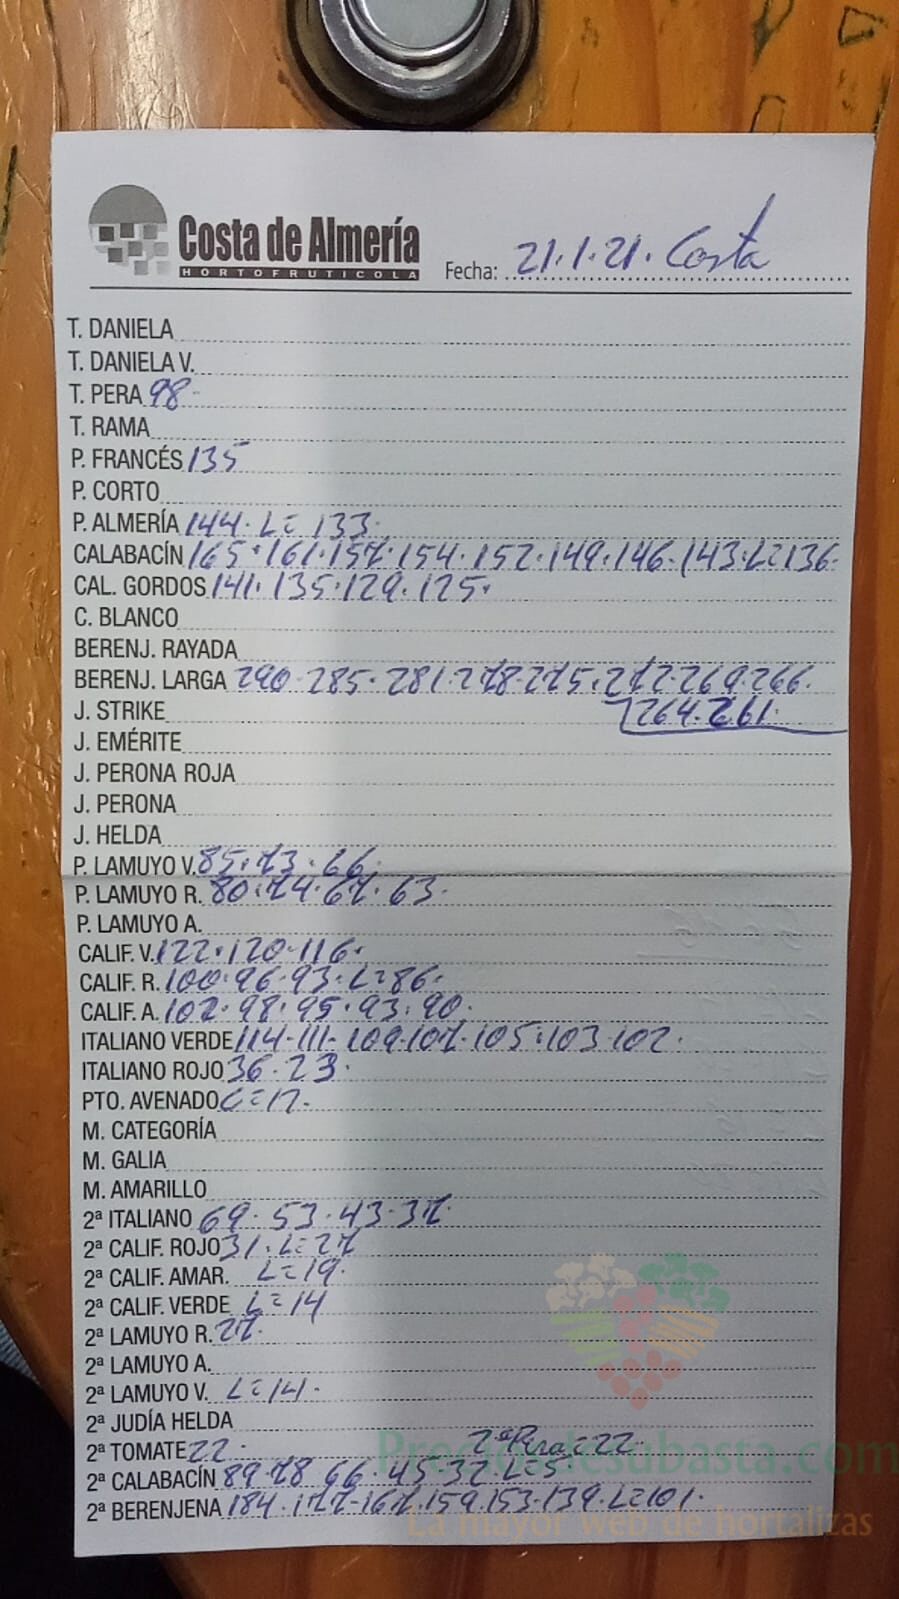 Costa de Almería
HORTOFRUTICOLA
Fecha: 21.1.21. Costa
T. DANIELA
T. DANIELA V.
T. PERA 98-
T. RAMA
P. FRANCÉS 135
P. CORTO
P. ALMERÍA 144. L= 133.
CALABACÍN 165.161.157.154.152.149.146.143.L=136.
CAL. GORDOS 141.135.129.125.
C. BLANCO
BERENJ. RAYADA
BERENJ. LARGA 290-285.281.278-275.272.269.266.
J. STRIKE 264.261.
J. EMÉRITE
J. PERONA ROJA
J. PERONA
J. HELDA
P. LAMUYO V. 85.73.66.
P. LAMUYO R. 80.74.67.63.
P. LAMUYO A.
CALIF. V. 122.120.116.
CALIF. R. 100.96.93.L=86.
CALIF. A. 102.98.95.93.90.
ITALIANO VERDE 114-111-109.107.105.103.102.
ITALIANO ROJO 36.23.
PTO. AVENADO L=17.
M. CATEGORÍA
M. GALIA
M. AMARILLO
2ª ITALIANO 69.53.43.37.
2ª CALIF. ROJO 31.L=27
2ª CALIF. AMAR. L=19.
2ª CALIF. VERDE L=14
2ª LAMUYO R. 27.
2ª LAMUYO A.
2ª LAMUYO V. L=14.
2ª JUDÍA HELDA
2ª TOMATE 22. 2ª Pera=22.
2ª CALABACÍN 89.78.66.45.32.L=5.
2ª BERENJENA 184.177-167.159.153.139.L=101.
Preciosdesubasta.com
La mayor web de hortalizas